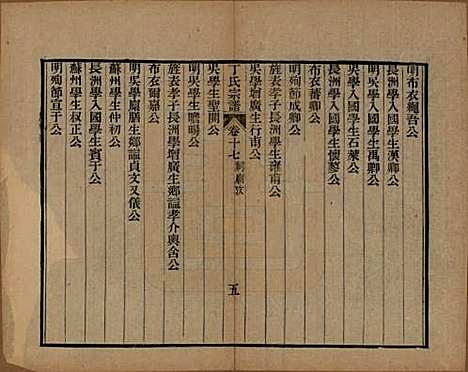 明布衣繩吾公
長洲學入國學生漢卿公
明吳學入國學生禹卿公
吳學入國學生石蒙公
長洲學入國學生懷蓼公
布衣蕃卿公
明殉節成卿公
吳學增廣生行甫公
旌表孝子長洲學生雍甫公
丁氏宗譜 卷十七 祠廟攷 五
吳學生聖開公
明吳學生曦暘公
旌表孝子長洲學增廣生鄉謚孝介輿含公
布衣爾嘉公
明吳學廩膳生鄉謚貞文又儀公
蘇州學生仲初公
長洲學入國學生賓于公
蘇州學生叔正公
明殉節宣于公